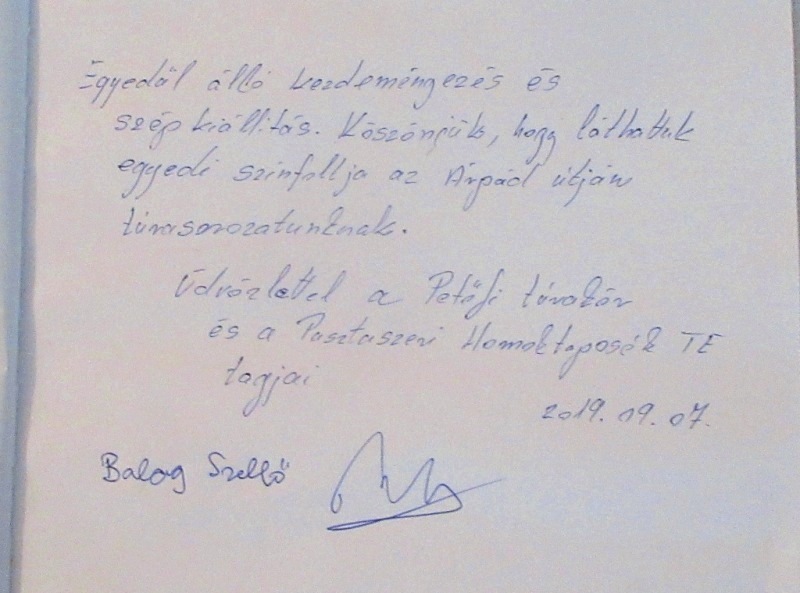 Egyedül álló kezdeményezés és
szép kiállítás. Köszönjük, hogy láthattuk
egyedi színfoltja az Árpád útján
túrasorozatunknak.
Üdvözlettel a Petőfi túrakör
és a Pusztaszeri Homoktaposók TE
tagjai
2019. 09. 07.
Balog Szellő